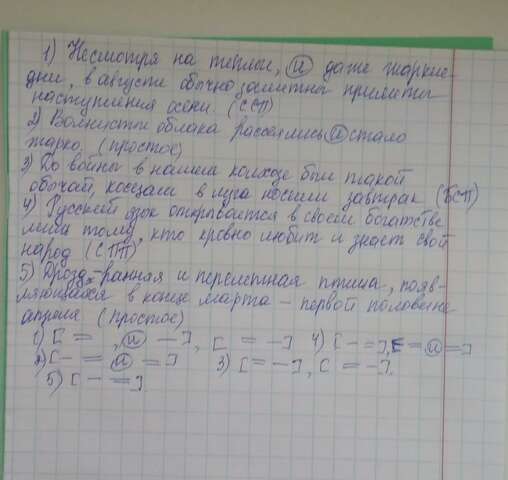 1) Несмотря на теплые, и даже жаркие
дни, в августе обычно заметны приметы
наступления осени. (ССП)
2) Волнистые облака рассеялись и стало
жарко. (простое)
3) До войны в нашем колхозе был такой
обычай, косцам в луга носили завтрак (БСП)
4) Русский язык открывается в своем богатстве
лиш тому, кто кровно любит и знает свой
народ (СПП)
5) Дрозд - ранняя и перелетная птица, появ-
ляющаяся в конце марта - первой половине
апреля (простое)
1) [ = , и - ], [ = - ] 4) [ - = ], [ = и = ]
2) [ - = и = ] 3) [ = - ], [ = - ].
5) [ - = ]